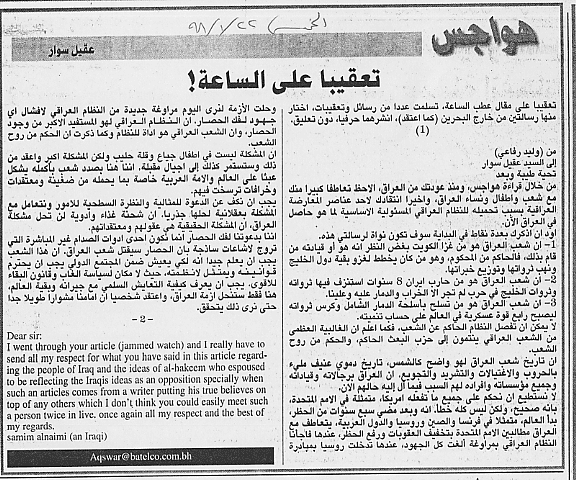 الخميس ٩٨/١/٢٢
هواجس
عقيل سوار
تعقيبا على الساعة!
تعقيبا على مقال عطب الساعة، تسلمت عددا من رسائل وتعقيبات، اختار
منها رسالتين من خارج البحرين (كما اعتقد)، انشرهما حرفيا، دون تعليق.
(1)
من (وليد رفاعي)
إلى السيد عقيل سوار
تحية طيبة وبعد
من خلال قراءة هواجس، ومنذ عودتك من العراق، الاحظ تعاطفا كبيرا منك
مع شعب واطفال ونساء العراق، واخيرا انتقادك لاحد عناصر المعارضة
العراقية بسبب تحميله للنظام العراقي المسئولية الاساسية لما هو حاصل
في العراق الآن.
اود ان اذكرك بعدة نقاط في البداية سوف تكون نواة لرسالتي هذه.
1– ان شعب العراق هو من غزا الكويت بغض النظر انه هو أو قيادته من
قام بذلك، فالحاكم من المحكوم، وهو من كان يخطط لغزو بقية دول الخليج
ونهب ثرواتها وتوزيع خيراتها.
2– ان شعب العراق هو من حارب ايران 8 سنوات استنزف فيها ثرواته
وثروات الخليج في حرب لم تجر الا الخراب والدمار عليه وعلينا.
3– ان شعب العراق هو من تسلح بأسلحة الدمار الشامل وكرس ثرواته
ليصبح رابع قوة عسكرية في العالم على حساب تنميته.
لا يمكن ان تفصل النظام الحاكم عن الشعب، فكما اعلم ان الغالبية العظمى
من الشعب العراقي ينتمون إلى حزب البعث الحاكم، والحكم من روح
الشعب.
ان تاريخ شعب العراق لهو واضح كالشمس، تاريخ دموي عنيف مليء
بالحروب والاغتيالات والتشريد والتجويع، ان العراق برجالاته وقياداته
وجميع مؤسساته وافراده لهم السبب فيما آل إليه حالهم الآن.
لا نستطيع ان نحكم على جميع ما تفعله امريكا، متمثلة في الامم المتحدة،
بأنه صحيح، ولكن ليس كله خطأ، انه وبعد مضي سبع سنوات من الحظر،
بدأ العالم، متمثلا في فرنسا والصين وروسيا والدول العربية، يتعاطف مع
العراق مطالبين الامم المتحدة بتخفيف العقوبات ورفع الحظر، عندها فاجأنا
النظام العراقي بمراوغة ألغت كل الجهود، عندها تدخلت روسيا بمبادرة
وحلت الأزمة لنرى اليوم مراوغة جديدة من النظام العراقي لافشال اي
جهود لفك الحصار، ان النظام العراقي لهو المستفيد الاكبر من وجود
الحصار، وان الشعب العراقي هو اداة للنظام وكما ذكرت ان الحكم من روح
الشعب.
ان المشكلة ليست في اطفال جياع وقلة حليب ولكن المشكلة اكبر واعقد من
ذلك وستستمر كذلك إلى اجيال مقبلة، اننا هنا بصدد شعب بأكمله يشكل
عبئا على العالم والامة العربية خاصة بما يحمله من ضغينة ومعتقدات
وخرافات ترسخت فيهم.
يجب ان نكف عن الدعوة للمثالية والنظرة السطحية للامور ونتعامل مع
المشكلة بعقلانية لحلها جذريا، أن شحنة غذاء وأدوية لن تحل مشكلة
العراق، ان المشكلة الحقيقية هي عقولهم ومعتقداتهم.
اننا بدعوتنا لفك الحصار انما نكون احدى ادوات الصدام غير المباشرة التي
تروج لاشاعات ساذجة بان الحصار سيقتل شعب العراق، ان هذا الشعب
يجب ان يعلم جيدا انه لكي يعيش ضمن المجتمع الدولي يجب ان يحترم
قوانينه ويمتثل لانظمته، حيث لا مكان لسياسة الغاب وقانون البقاء
للاقوى، يجب ان يعرف كيفية التعايش السلمي مع جيرانه وبقية العالم،
هنا فقط ستنحل ازمة العراق، واعتقد شخصيا ان امامنا مشوارا طويلا جدا
حتى نرى ذلك يتحقق.
– 2 –
Dear sir:
I went through your article (jammed watch) and I really have to
send all my respect for what you have said in this article regard-
ing the people of Iraq and the ideas of al-hakeem who espoused
to be reflecting the Iraqis ideas as an opposition specially when
such an articles comes from a writer putting his true believes on
top of any others which I don't think you could easily meet such
a person twice in live. once again all my respect and the best of
my regards.
samim alnaimi (an Iraqi)
Aqswar@batelco.com.bh